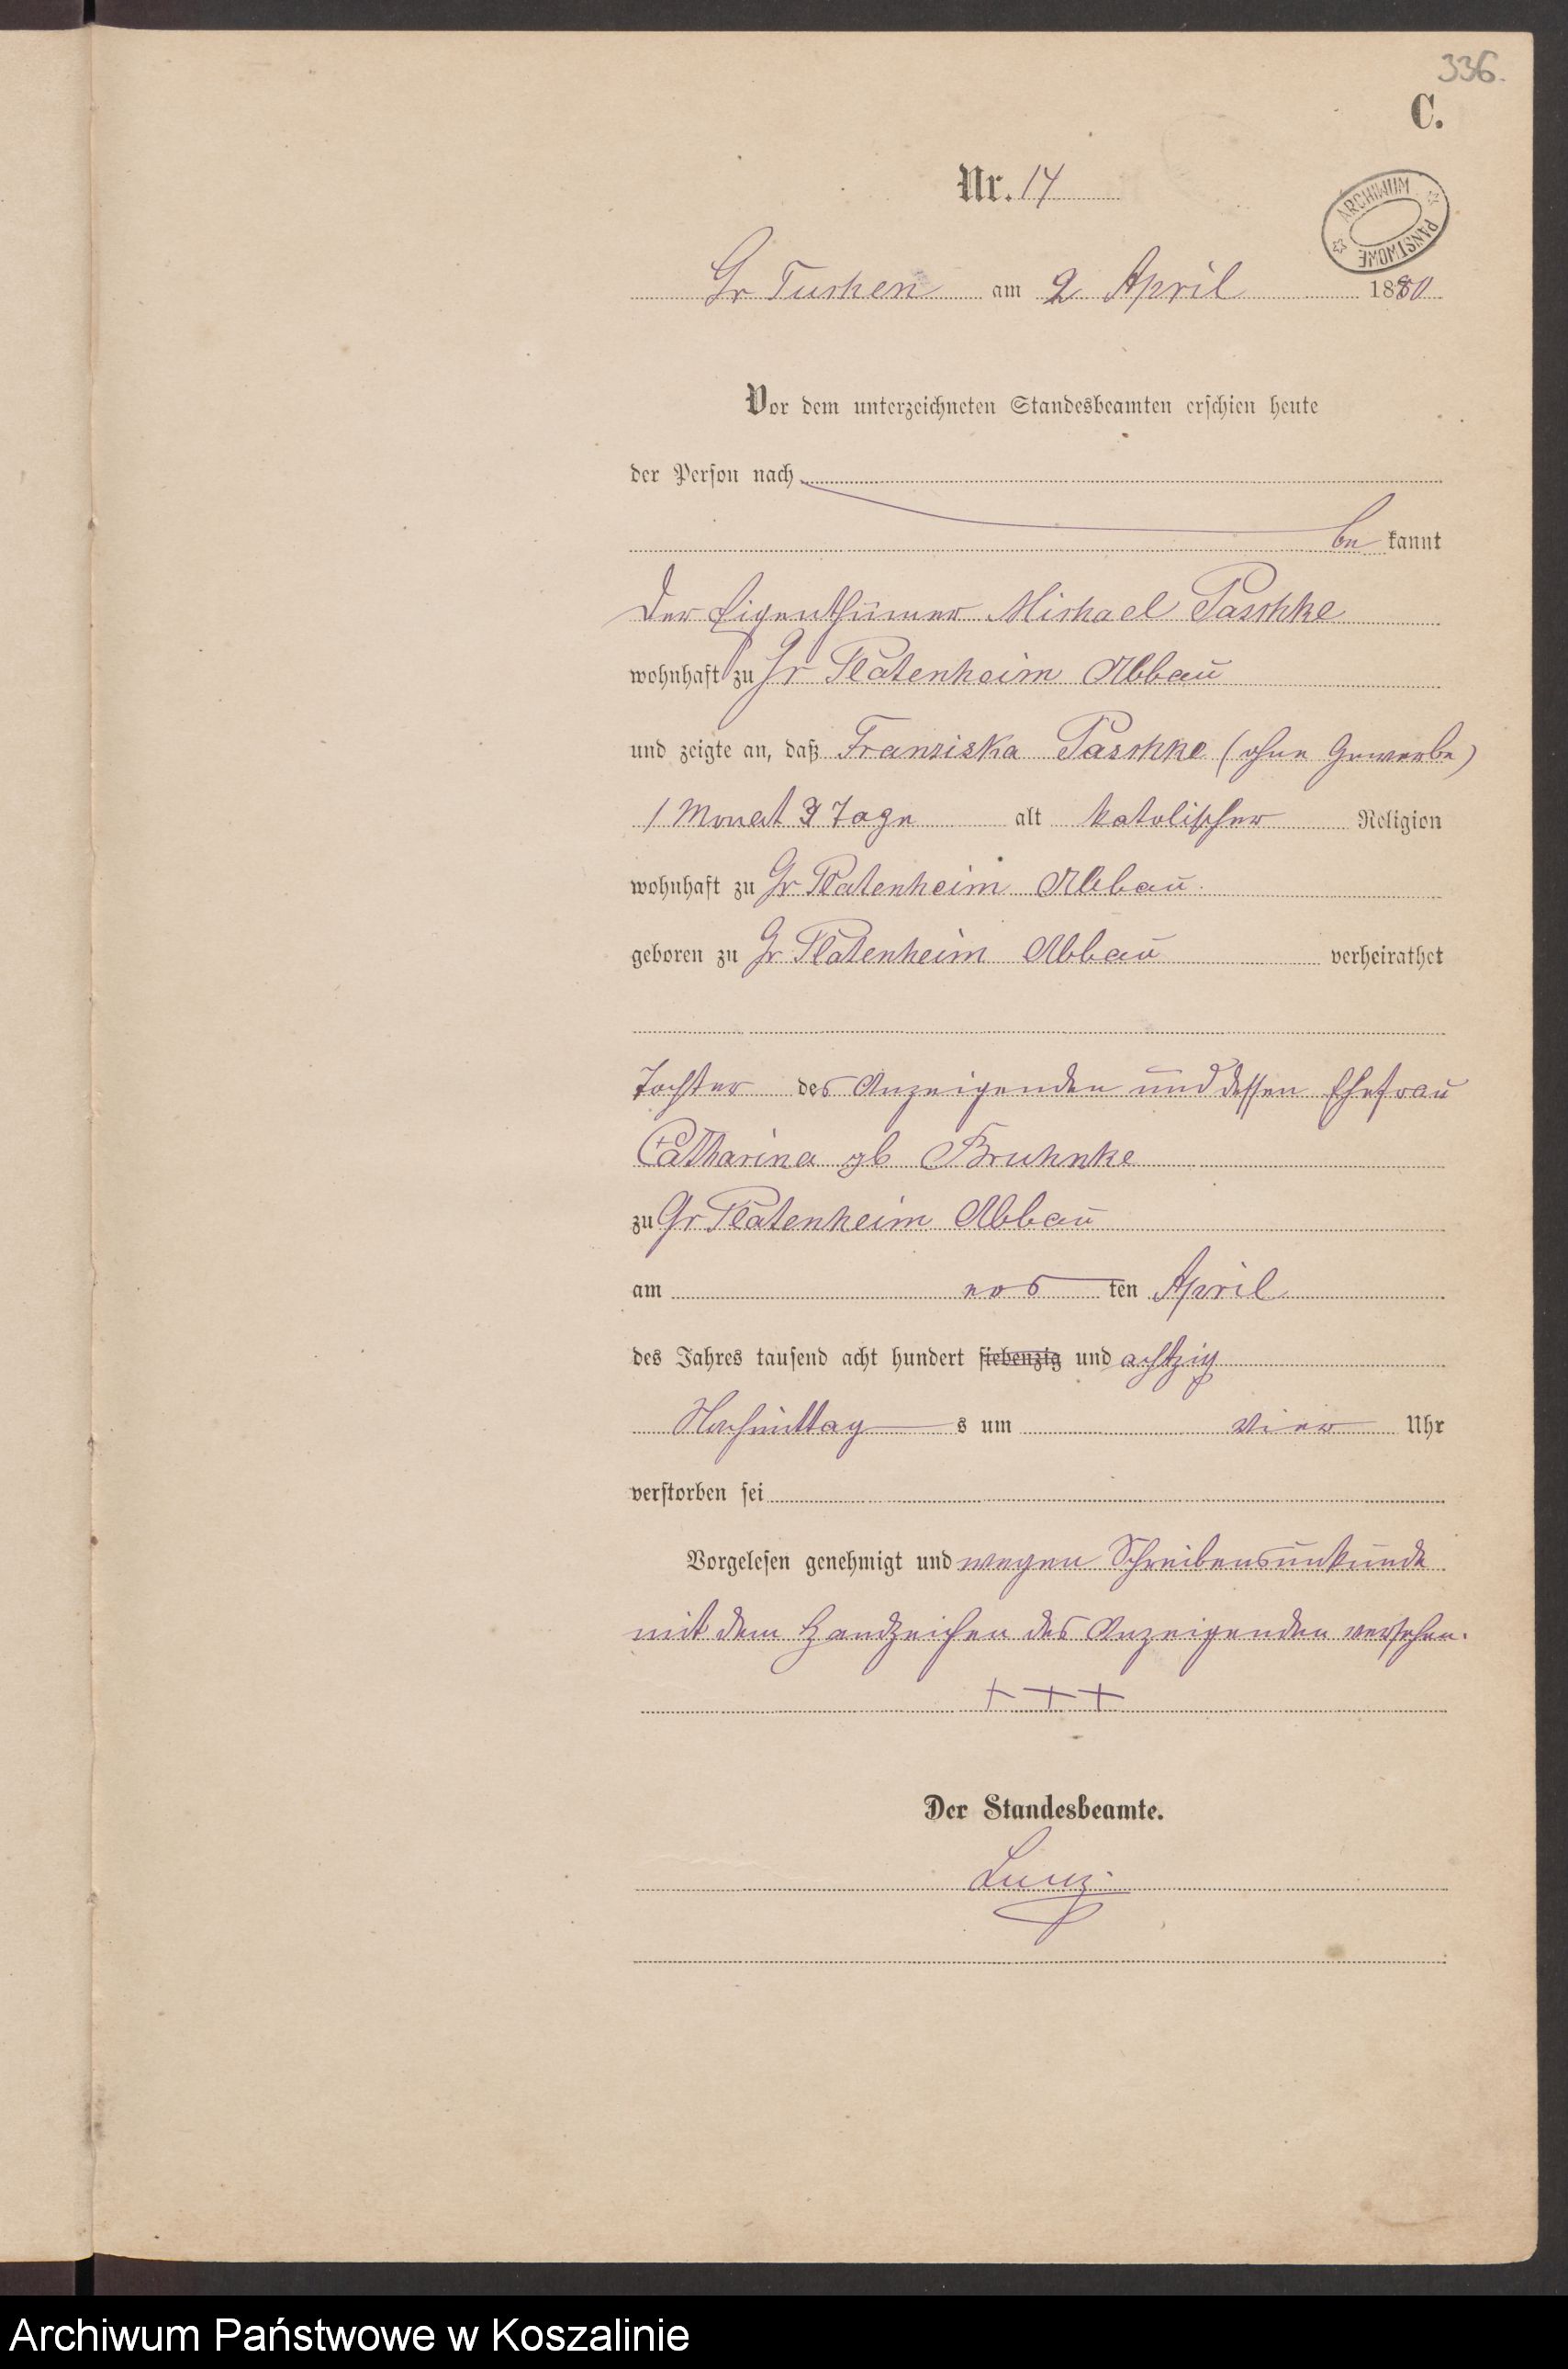 336.
C.
Nr. 14
ARCHIWUM PAŃSTWOWE
Gr Tuchen am 2 April 1880
Vor dem unterzeichneten Standesbeamten erschien heute
der Person nach
be kannt
Der Eigenthümer Michael Paschke
wohnhaft zu Gr Platenheim Abbau
und zeigte an, daß Franziska Paschke (ohne Gewerbe)
1 Monat 3 Tage alt katolischer Religion
wohnhaft zu Gr Platenheim Abbau
geboren zu Gr Platenheim Abbau verheirathet
Tochter des Anzeigenden und dessen Ehefrau
Catharina gb Bruhnke
zu Gr Platenheim Abbau
am ten April
des Jahres tausend acht hundert siebenzig und achtzig
Nachmittag s um vier Uhr
verstorben sei
Vorgelesen genehmigt und wegen Schreibensunkunde
mit dem Handzeichen des Anzeigenden versehen.
+ + +
Der Standesbeamte.
Archiwum Państwowe w Koszalinie